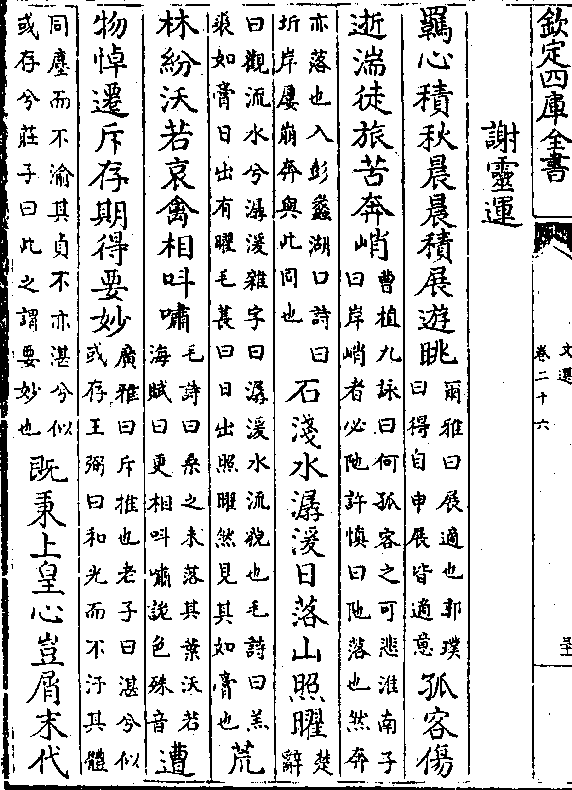 欽定四庫全書
文選
卷二十六
謝靈運
羈心積秋晨晨積展遊眺
爾雅曰展適也郭璞
曰得自申展皆適意
孤客傷
逝湍徒旅苦奔峭
曹植九詠曰何孤客之可悲淮南子
曰岸峭者必阤許慎曰阤落也然奔
亦落也入彭蠡湖口詩曰
圻岸屢崩奔與此同也
石淺水潺湲日落山照曜
楚
辭
曰觀流水兮潺湲雜字曰潺湲水流貌也毛詩曰羔
裘如膏日出有曜毛萇曰日出照曜然見其如膏也
荒
林紛沃若哀禽相呌嘯
毛詩曰桑之未落其葉沃若
海賦曰更相呌嘯詭色殊音
遭
物悼遷斥存期得要妙
廣雅曰斥推也老子曰湛兮似
或存王弼曰和光而不汙其體
同塵而不渝其貞不亦湛兮似
或存兮莊子曰此之謂要妙也
既秉上皇心豈屑末代